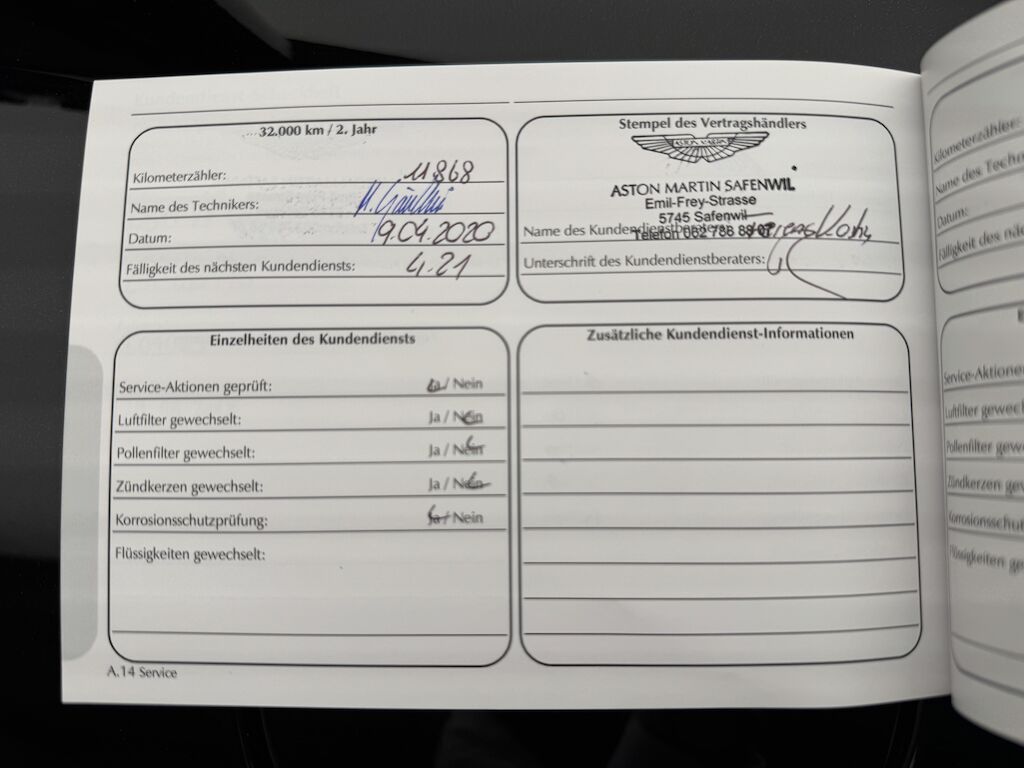 32.000 km / 2. Jahr
Kilometerzähler: 11868
Name des Technikers:
Datum: 19.04.2020
Fälligkeit des nächsten Kundendiensts: 4.21
Stempel des Vertragshändlers
ASTON MARTIN
ASTON MARTIN SAFENWIL
Emil-Frey-Strasse
5745 Safenwil
Name des Kundendienstberaters:
Telefon 062 788 8
Unterschrift des Kundendienstberaters:
Einzelheiten des Kundendiensts
Service-Aktionen geprüft: Ja / Nein
Luftfilter gewechselt: Ja / Nein
Pollenfilter gewechselt: Ja / Nein
Zündkerzen gewechselt: Ja / Nein
Korrosionsschutzprüfung: Ja / Nein
Flüssigkeiten gewechselt:
Zusätzliche Kundendienst-Informationen
A.14 Service
Kilometerzähler:
Name des Techn
Datum:
Fälligkeit des näch
Service-Aktionen
Luftfilter gewech
Pollenfilter gew
Zündkerzen gew
Korrosionsschut
Flüssigkeiten ge